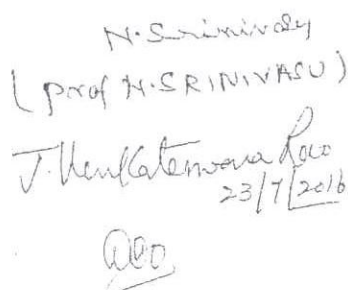 N. Srinivasu
(Prof N. SRINIVASU)
J. Venkateswara Rao
23/7/2016